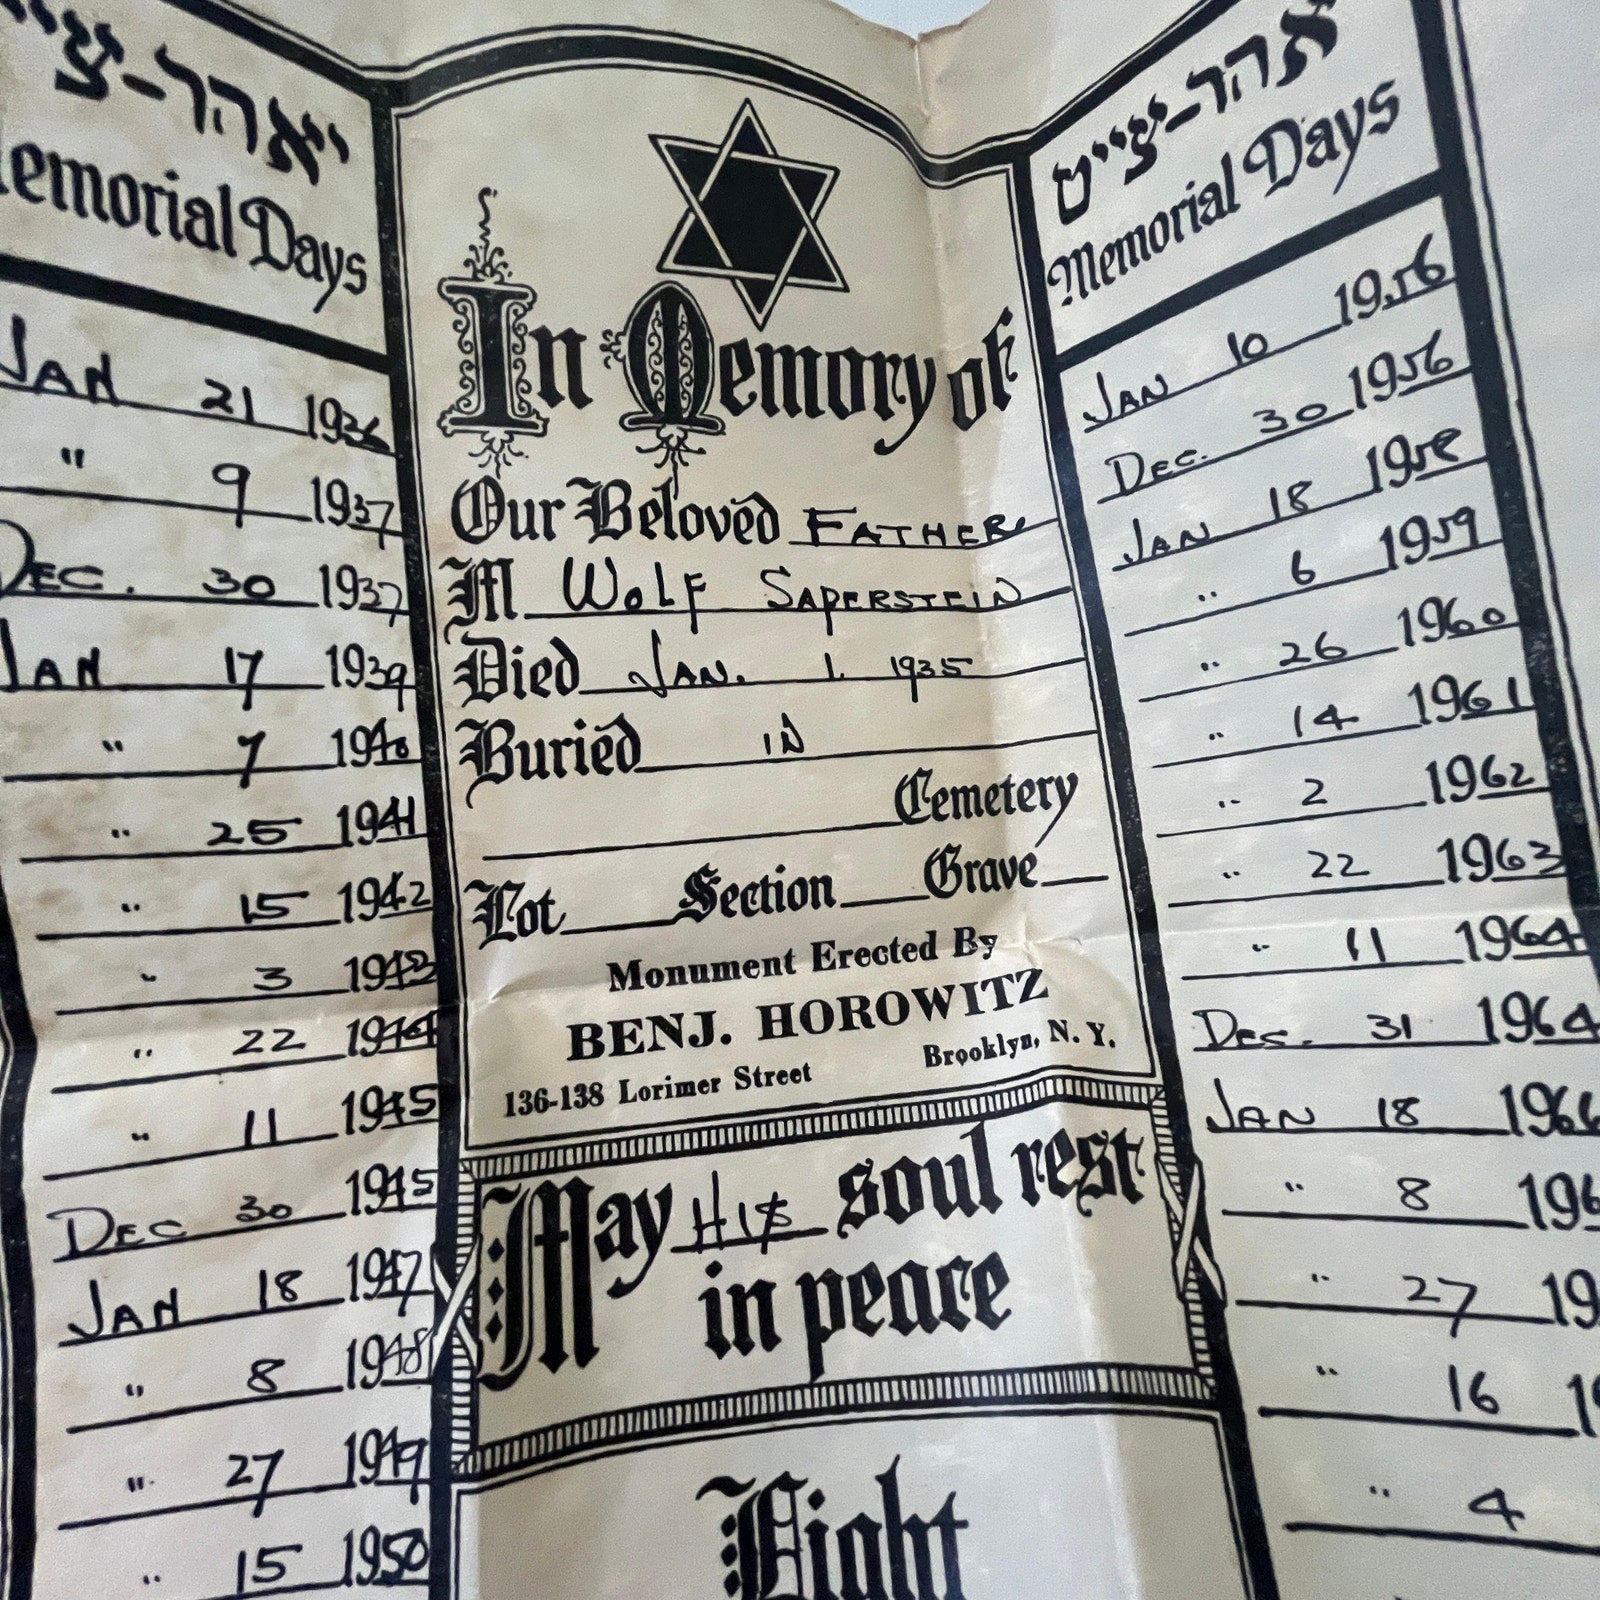 יאהר-צייט
Memorial Days
JAN 21 1936
" 9 1937
DEC. 30 1937
JAN 17 1939
" 7 1940
" 25 1941
" 15 1942
" 3 1943
" 22 1944
" 11 1945
DEC 30 1945
JAN 18 1947
" 8 1948
" 27 1949
" 15 1950
In Memory of
Our Beloved FATHER
M WOLF SAPERSTEIN
Died JAN. 1. 1935
Buried IN
Cemetery
Lot Section Grave
Monument Erected By
BENJ. HOROWITZ
136-138 Lorimer Street Brooklyn, N. Y.
May HIS soul rest
in peace
Light
יאהר-צייט
Memorial Days
JAN 10 1956
DEC. 30 1956
JAN 18 1958
" 6 1959
" 26 1960
" 14 1961
" 2 1962
" 22 1963
" 11 1964
DEC. 31 1964
JAN 18 1966
" 8 196
" 27 19
" 16 1
" 4